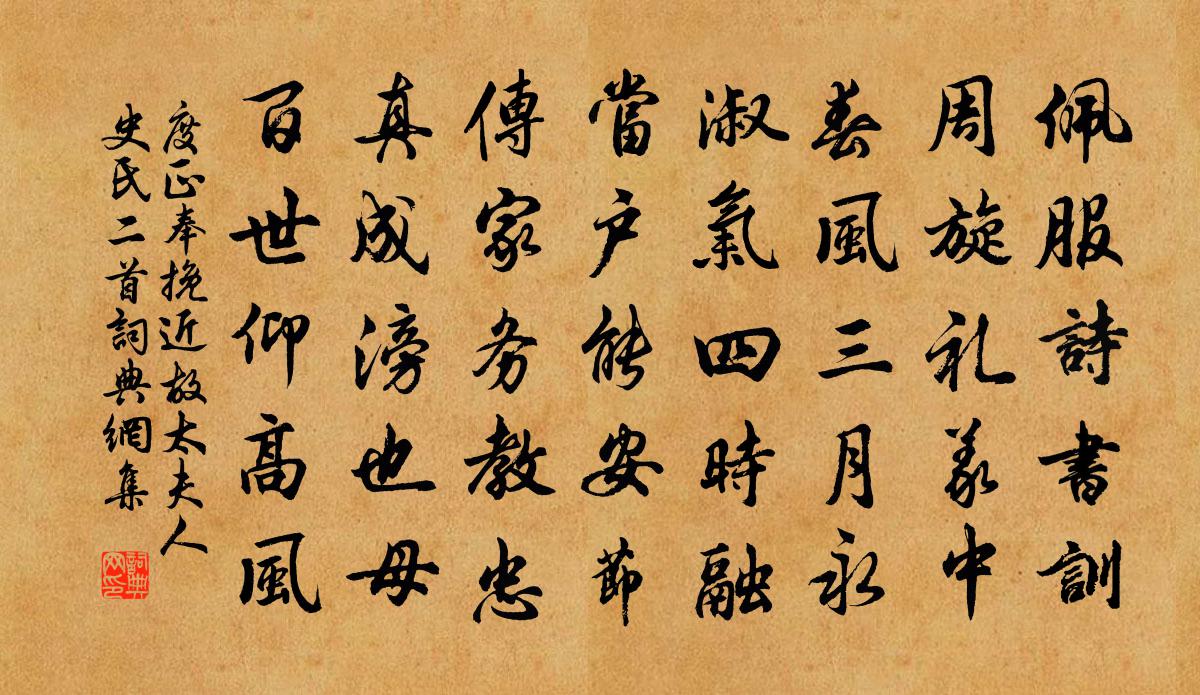 佩服詩書訓
周旋礼義中
春風三月永
淑氣四時融
當户能安節
傳家务教忠
真成滂也母
百世仰高風
度正奉挽近故太夫人
史氏二首詞典網集
詞典網印